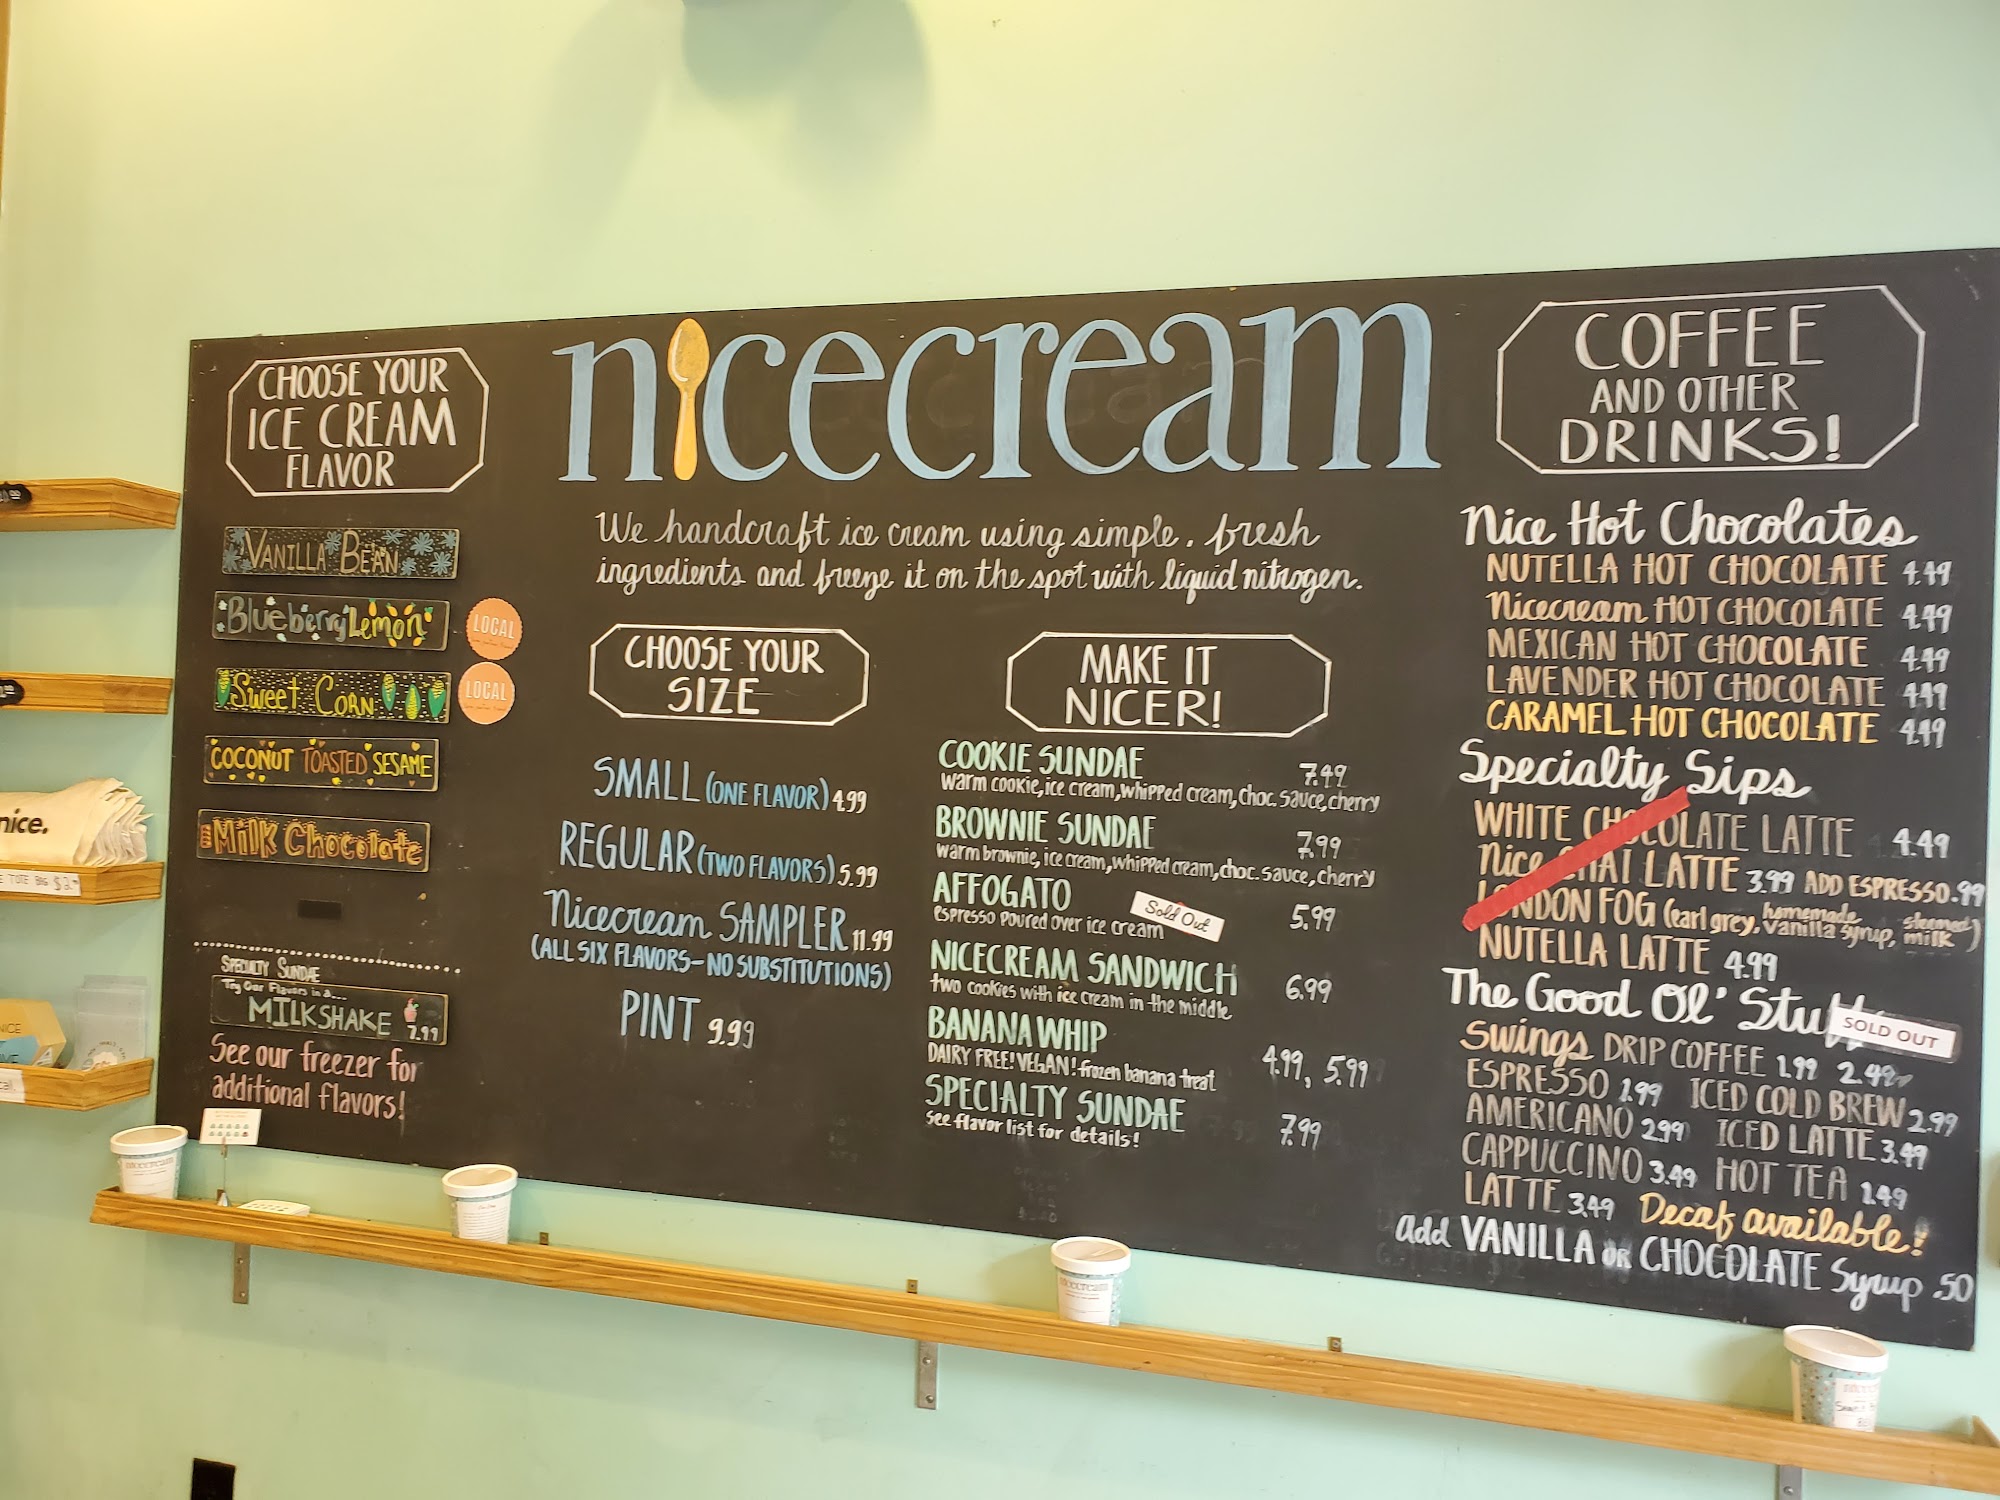 CHOOSE YOUR
ICE CREAM
FLAVOR
VANILLA BEAN
Blueberry Lemon
LOCAL
Sweet Corn
LOCAL
COCONUT TOASTED SESAME
Milk Chocolate
SPECIALTY SUNDAE
Try Our Flavors in a...
MILKSHAKE
7.99
See our freezer for
additional flavors!
nicecream
We handcraft ice cream using simple, fresh
ingredients and freeze it on the spot with liquid nitrogen.
CHOOSE YOUR
SIZE
SMALL (ONE FLAVOR) 4.99
REGULAR (TWO FLAVORS) 5.99
Nicecream SAMPLER 11.99
(ALL SIX FLAVORS-NO SUBSTITUTIONS)
PINT 9.99
MAKE IT
NICER!
COOKIE SUNDAE 7.49
warm cookie, ice cream, whipped cream, choc. sauce, cherry
BROWNIE SUNDAE 7.99
warm brownie, ice cream, whipped cream, choc. sauce, cherry
AFFOGATO 5.99
espresso poured over ice cream
Sold Out
NICECREAM SANDWICH 6.99
two cookies with ice cream in the middle
BANANA WHIP 4.99, 5.99
DAIRY FREE! VEGAN! frozen banana treat
SPECIALTY SUNDAE 7.99
See flavor list for details!
COFFEE
AND OTHER
DRINKS!
Nice Hot Chocolates
NUTELLA HOT CHOCOLATE 4.49
Nicecream HOT CHOCOLATE 4.49
MEXICAN HOT CHOCOLATE 4.49
LAVENDER HOT CHOCOLATE 4.49
CARAMEL HOT CHOCOLATE 4.49
Specialty Sips
WHITE CHOCOLATE LATTE 4.49
Nice CHAI LATTE 3.99 ADD ESPRESSO .99
LONDON FOG (earl grey, homemade vanilla syrup, steamed milk)
NUTELLA LATTE 4.99
The Good Ol' Stuff
SOLD OUT
Swings DRIP COFFEE 1.99 2.49
ESPRESSO 1.99 ICED COLD BREW 2.99
AMERICANO 2.99 ICED LATTE 3.49
CAPPUCCINO 3.49 HOT TEA 1.49
LATTE 3.49 Decaf available!
add VANILLA OR CHOCOLATE Syrup .50
nice.
TOTE BAG
nicecream
nicecream